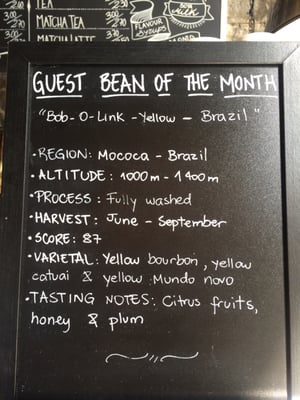 TEA
MATCHA TEA
MATCHA LATTE
FLAVOUR
SYRUPS
GUEST BEAN OF THE MONTH
"Bob-O-Link -Yellow - Brazil"
• REGION: Mococa - Brazil
• ALTITUDE: 1000m - 1400m
• PROCESS: Fully washed
• HARVEST: June - September
• SCORE: 87
• VARIETAL: Yellow bourbon, yellow
catuai & yellow Mundo novo
• TASTING NOTES: Citrus fruits,
honey & plum